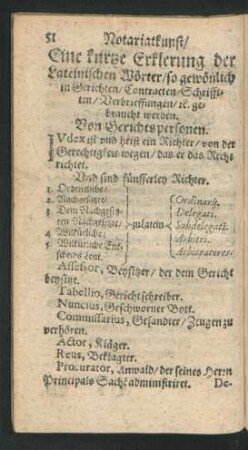 51 Notariatkunst/
Eine kurtze Erklerung der
Lateinischen Wörter/ so gewönlich
in Gerichten/ Contracten/ Schriff-
ten/ Verbrieffungen/ ꝛc. ge-
braucht werden.
Von Gerichtspersonen.
IVdex ist vnd heist ein Richter/ von der
Gerechtigkeit wegen/ das er das Recht
richtet.
Vnd sind fünfferley Richter.
1. Ordentliche/
2. Nachgesetzte/
3. Dem Nachgesetz-
ten Nachgesetzte/
4. Willkürliche
5. Willkürliche Ent-
scheids Leut.
zu latein
Ordinarij.
Delegati.
Subdelegati.
Arbitri.
Arbitratores.
Assessor, Beysitzer/ der dem Gericht
beysitzt.
Tabellio, Gerichtschreiber.
Nuncius, Geschworner Bott.
Commissarius, Gesandter/ Zeugen zu
verhören.
Actor, Kläger.
Reus, Beklagter.
Procurator, Anwald/ der seines Herrn
Principals Sach administriret. De-